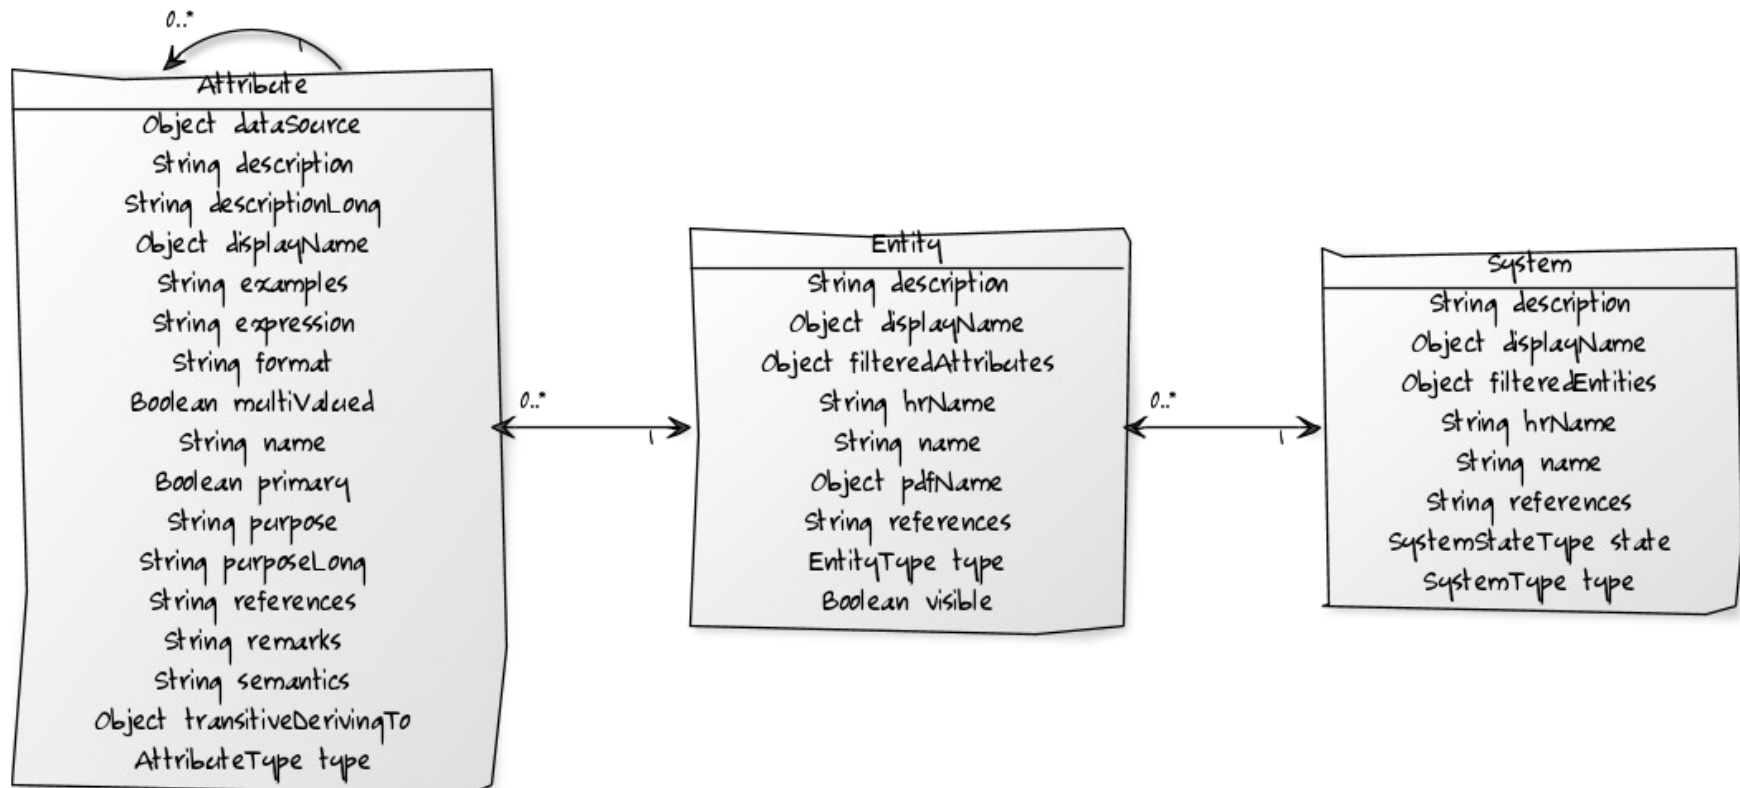 0..*
1
Attribute
Object dataSource
String description
String descriptionLong
Object displayName
String examples
String expression
String format
Boolean multiValued
String name
Boolean primary
String purpose
String purposeLong
String references
String remarks
String semantics
Object transitiveDerivingTo
AttributeType type
0..*
1
Entity
String description
Object displayName
Object filteredAttributes
String hrName
String name
Object pdfName
String references
EntityType type
Boolean visible
0..*
1
System
String description
Object displayName
Object filteredEntities
String hrName
String name
String references
SystemStateType state
SystemType type